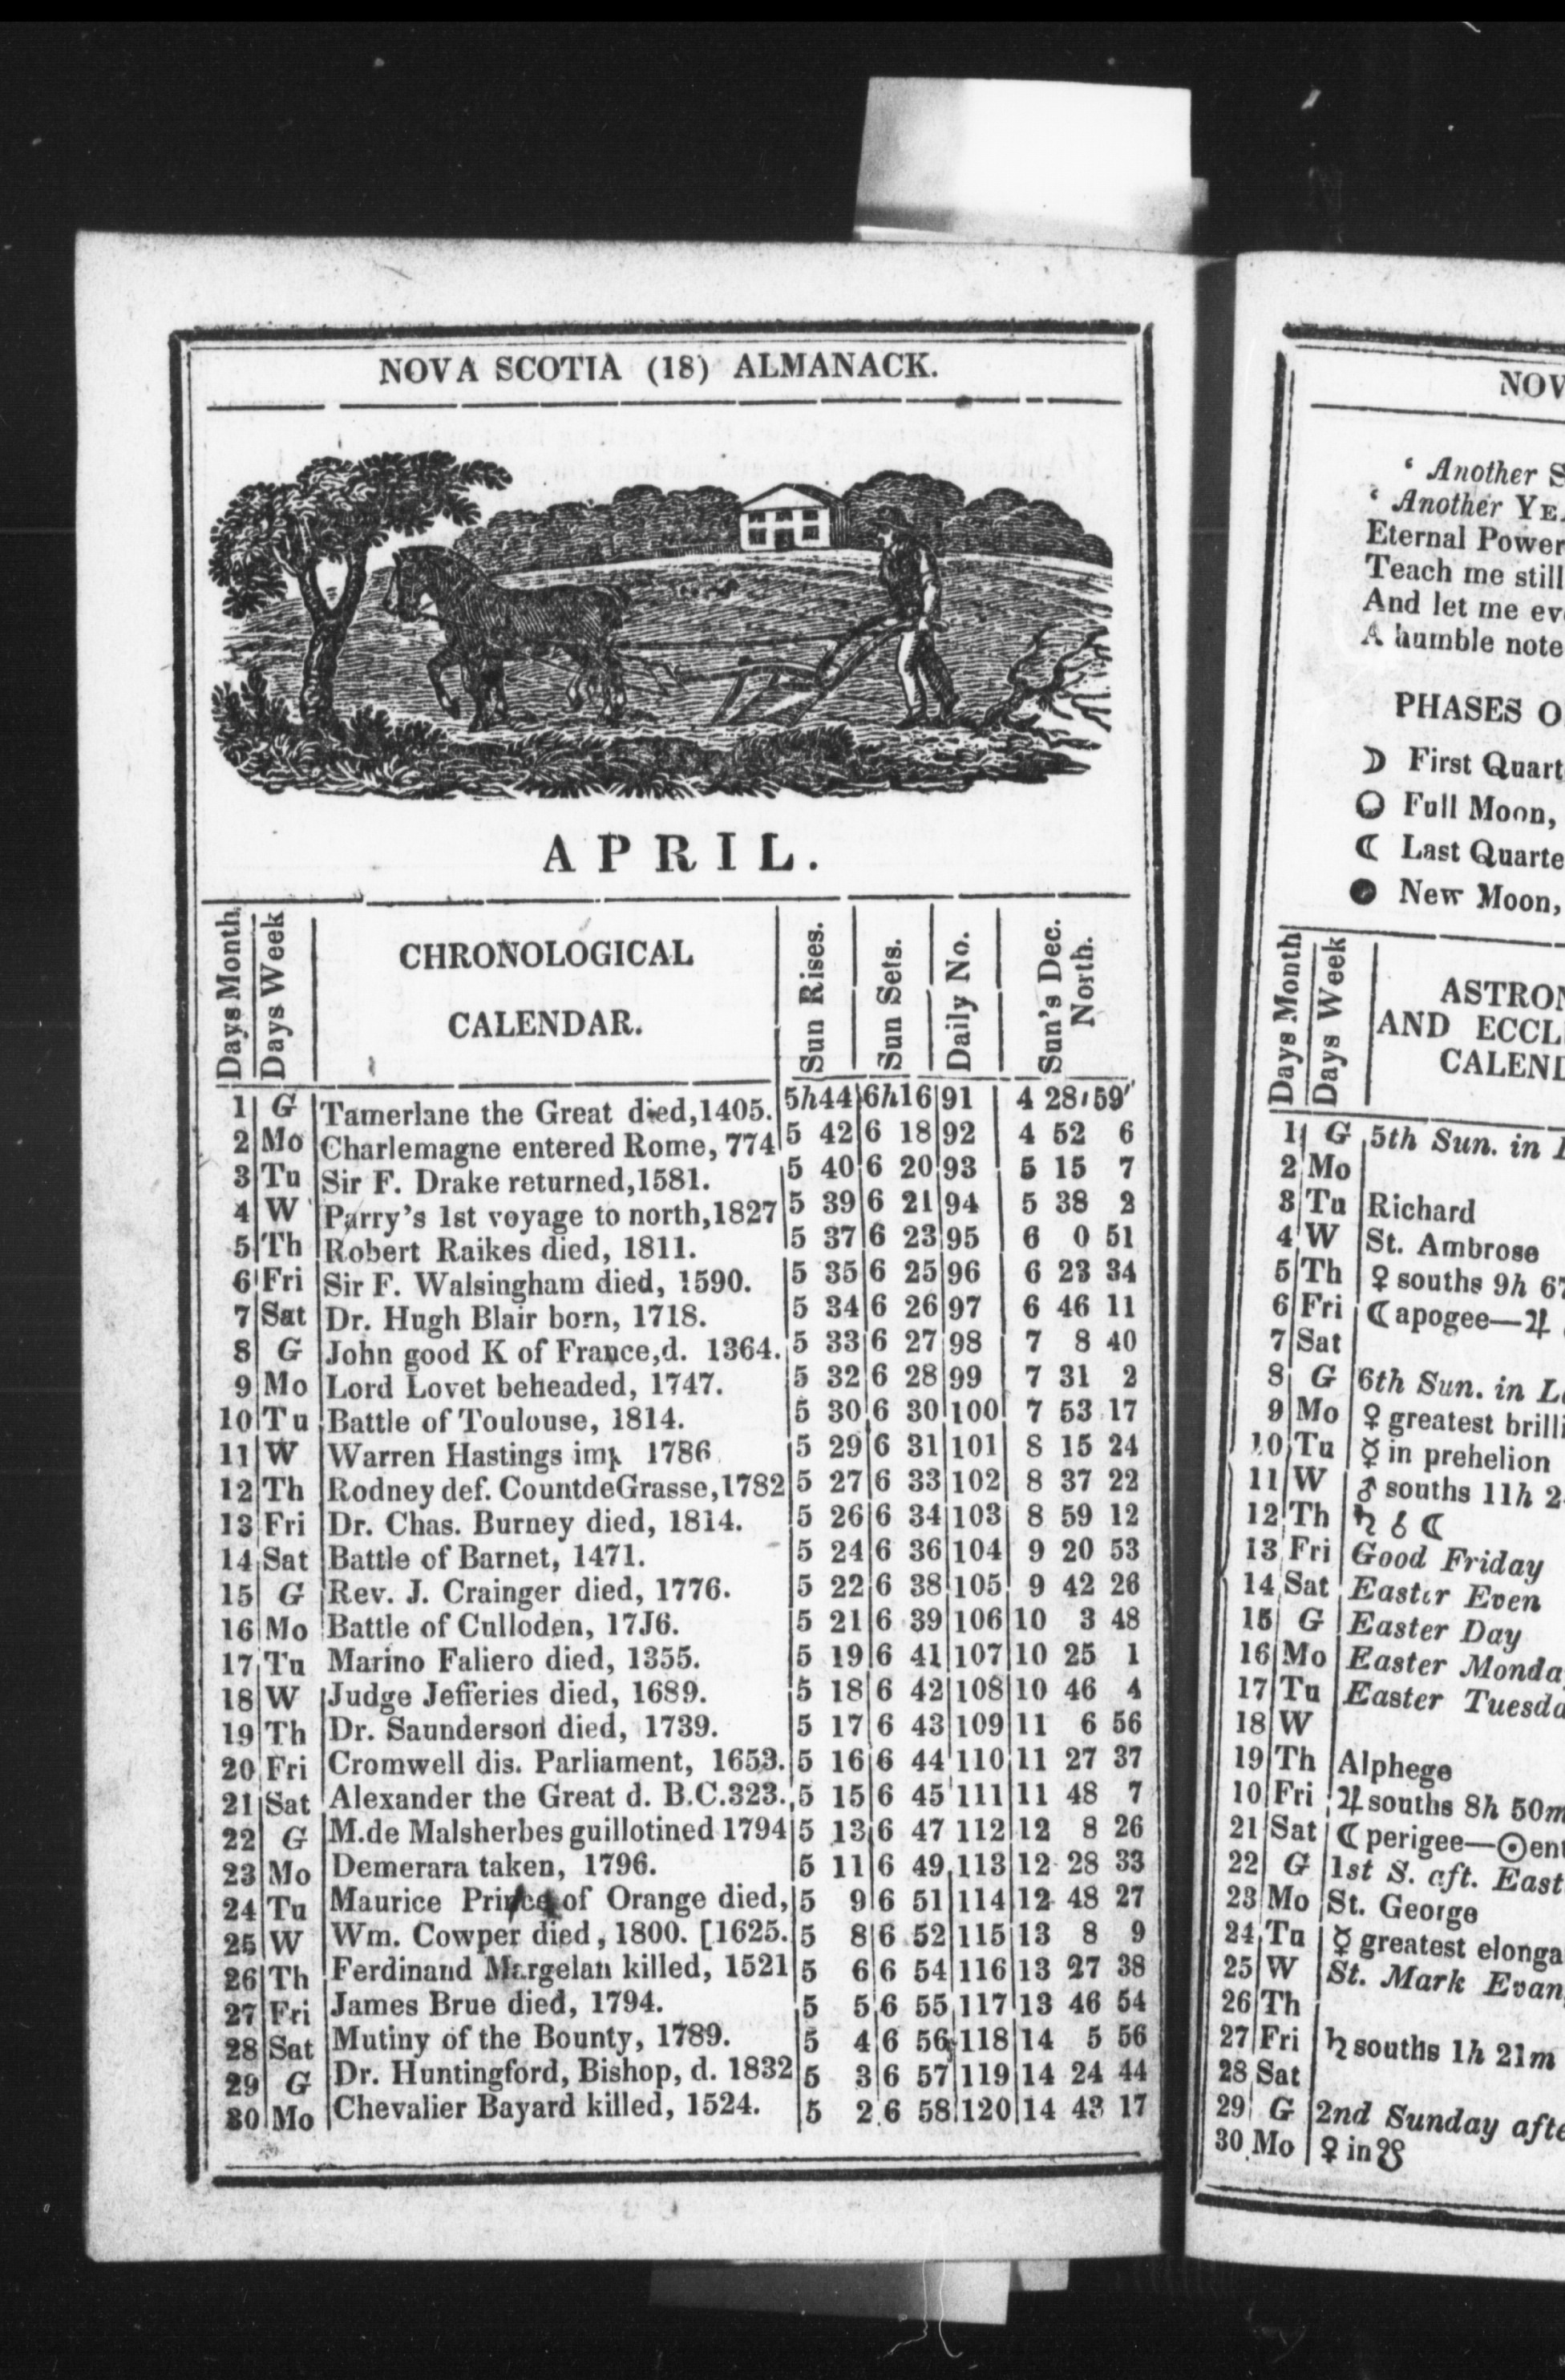 NOVA SCOTIA (18) ALMANACK.
APRIL.
Days Month
Days Week
CHRONOLOGICAL
CALENDAR.
Sun Rises.
Sun Sets.
Daily No.
Sun's Dec.
North.
1 G Tamerlane the Great died,1405. 5h44 6h16 91 4 28 59
2 Mo Charlemagne entered Rome, 774 5 42 6 18 92 4 52 6
3 Tu Sir F. Drake returned,1581. 5 40 6 20 93 5 15 7
4 W Parry's 1st voyage to north,1827 5 39 6 21 94 5 38 2
5 Th Robert Raikes died, 1811. 5 37 6 23 95 6 0 51
6 Fri Sir F. Walsingham died, 1590. 5 35 6 25 96 6 23 34
7 Sat Dr. Hugh Blair born, 1718. 5 34 6 26 97 6 46 11
8 G John good K of France,d. 1364. 5 33 6 27 98 7 8 40
9 Mo Lord Lovet beheaded, 1747. 5 32 6 28 99 7 31 2
10 Tu Battle of Toulouse, 1814. 5 30 6 30 100 7 53 17
11 W Warren Hastings 1786 5 29 6 31 101 8 15 24
12 Th Rodney def. CountdeGrasse,1782 5 27 6 33 102 8 37 22
13 Fri Dr. Chas. Burney died, 1814. 5 26 6 34 103 8 59 12
14 Sat Battle of Barnet, 1471. 5 24 6 36 104 9 20 53
15 G Rev. J. Crainger died, 1776. 5 22 6 38 105 9 42 26
16 Mo Battle of Culloden, 17J6. 5 21 6 39 106 10 3 48
17 Tu Marino Faliero died, 1355. 5 19 6 41 107 10 25 1
18 W Judge Jefferies died, 1689. 5 18 6 42 108 10 46 4
19 Th Dr. Saunderson died, 1739. 5 17 6 43 109 11 6 56
20 Fri Cromwell dis. Parliament, 1653. 5 16 6 44 110 11 27 37
21 Sat Alexander the Great d. B.C.323. 5 15 6 45 111 11 48 7
22 G M.de Malsherbes guillotined 1794 5 13 6 47 112 12 8 26
23 Mo Demerara taken, 1796. 5 11 6 49 113 12 28 33
24 Tu Maurice Prince of Orange died, 5 9 6 51 114 12 48 27
25 W Wm. Cowper died, 1800. [1625. 5 8 6 52 115 13 8 9
26 Th Ferdinand Margelan killed, 1521 5 6 6 54 116 13 27 38
27 Fri James Brue died, 1794. 5 5 6 55 117 13 46 54
28 Sat Mutiny of the Bounty, 1789. 5 4 6 56 118 14 5 56
29 G Dr. Huntingford, Bishop, d. 1832 5 3 6 57 119 14 24 44
30 Mo Chevalier Bayard killed, 1524. 5 2 6 58 120 14 43 17
NOV
' Another S
' Another YE
Eternal Power
Teach me still
And let me ev
A humble note
PHASES O
☽ First Quart
○ Full Moon,
☾ Last Quarte
● New Moon,
Days Month
Days Week
ASTRON
AND ECCL
CALEND
1 G 5th Sun. in
2 Mo
3 Tu Richard
4 W St. Ambrose
5 Th ♀ souths 9h 67
6 Fri ☾ apogee—♃
7 Sat
8 G 6th Sun. in L
9 Mo ♀ greatest brilli
10 Tu ☿ in prehelion
11 W ♂ souths 11h 2
12 Th ♄ ☌ ☾
13 Fri Good Friday
14 Sat Easter Even
15 G Easter Day
16 Mo Easter Monda
17 Tu Easter Tuesda
18 W
19 Th Alphege
10 Fri ♃ souths 8h 50m
21 Sat ☾ perigee—☉ ent
22 G 1st S. aft. East
23 Mo St. George
24 Tu ☿ greatest elonga
25 W St. Mark Evan
26 Th
27 Fri ♄ souths 1h 21m
28 Sat
29 G 2nd Sunday afte
30 Mo ♀ in ☋